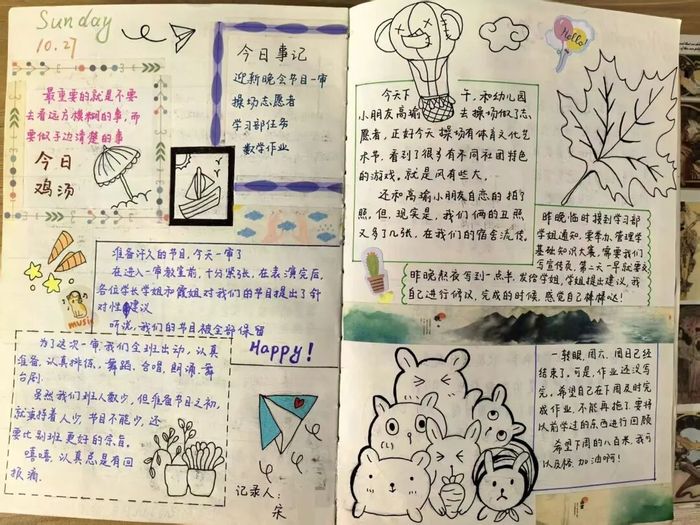 Sunday
10.27
最重要的就是不要
去看远方模糊的事,而
要做手边清楚的事
今日
鸡汤
今日事记
迎新晚会节目一审
操场志愿者
学习部任务
数学作业
准备许久的节目,今天一审了
在进入一审教室前,十分紧张,在表演完后,
各位学长学姐和霞姐对我们的节目提出了针
对性建议
听说,我们的节目被全部保留
Happy!
music
为了这次一审,我们全班出动,认真
准备,认真排练,舞蹈、合唱、朗诵、舞
台剧.
虽然我们班人数少,但准备节目之初,
就秉持着人少,节目不能少,还
要比别班更好的宗旨。
嘻嘻,认真总是有回
报滴.
记录人:
宋
Hello!
今天下午,和幼儿园
小朋友高瑜去操场做了志
愿者,正好今天操场有体育文化艺
术节,看到了很多有不同社团特色
的游戏。就是风有些大。
还和高瑜小朋友自恋的拍了
照,但,现实是,我们俩的丑照
又多了几张,在我们的宿舍流传。
昨晚,临时接到学习部
学姐通知,要举办管理学
基础知识大赛,需要我们
写宣传夜,第二天一早就要交
昨晚熬夜写到一点半,发给学姐,学姐提出建议,我
自己进行修议,完成的时候,感觉自己棒棒哒!
一转眼,周六、周日已经
结束了,可是,作业还没写
完,希望自己在下周及时完
成作业,不能再拖了,要将
以前学过的东西进行回顾
希望下周的八百米,我可
以及格,加油啊!